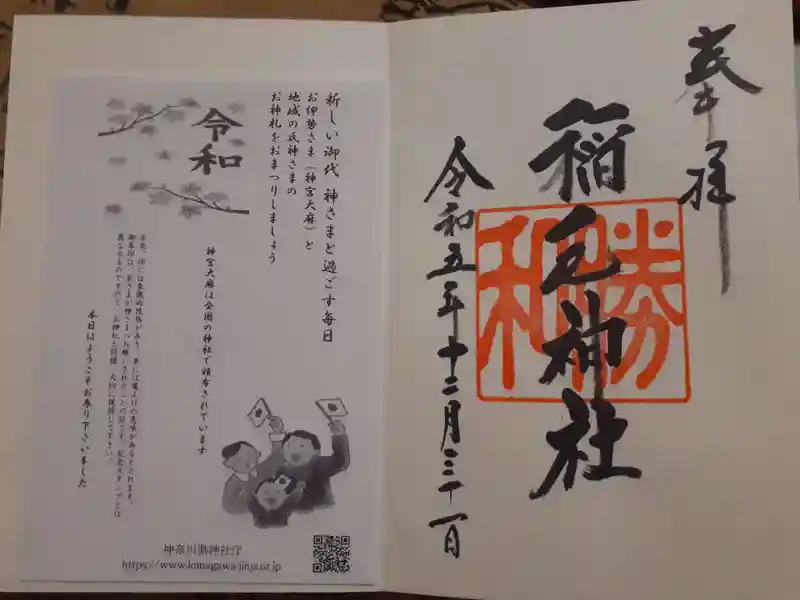 奉拝
稲毛神社
勝
和
令和五年十二月三十一日
新しい御代 神さまと過ごす毎日
お伊勢さま(神宮大麻)と
地域の氏神さまの
お神札をおまつりしましょう
令和
神宮大麻は全国の神社で頒布されています
本日はようこそお参り下さいました
神奈川県神社庁
https://www.kanagawa-jinja.or.jp